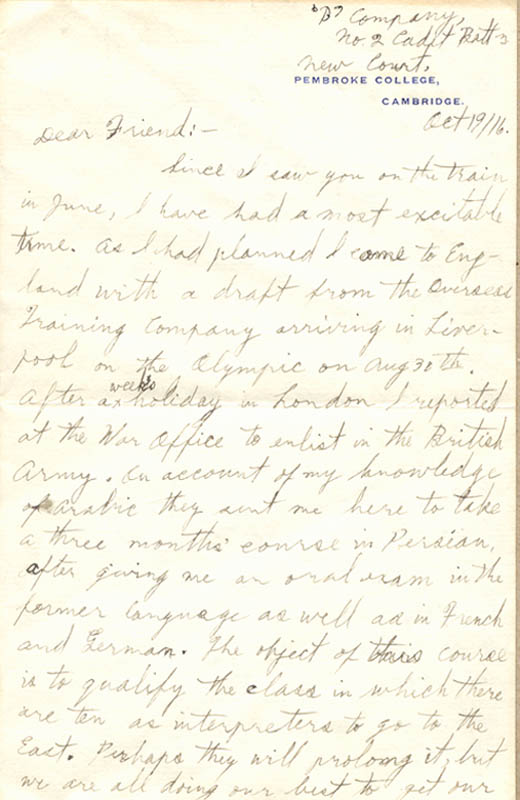 "D" Company,
No. 2 Cadet Batt-
New Court,
PEMBROKE COLLEGE,
CAMBRIDGE.
Oct 19/16.
Dear Friend:-
Since I saw you on the train
in June, I have had a most excitable
time. As I had planned I came to Eng-
land with a draft from the Overseas
Training Company arriving in Liver-
pool on the Olympic on Aug 30th.
After a week's holiday in London I reported
at the War Office to enlist in the British
Army. On account of my knowledge
of Arabic they sent me here to take
a three months' course in Persian,
after giving me an oral exam in the
former language as well as in French
and German. The object of this course
is to qualify the class in which there
are ten as interpreters to go to the
East. Perhaps they will prolong it, but
we are all doing our best to get our